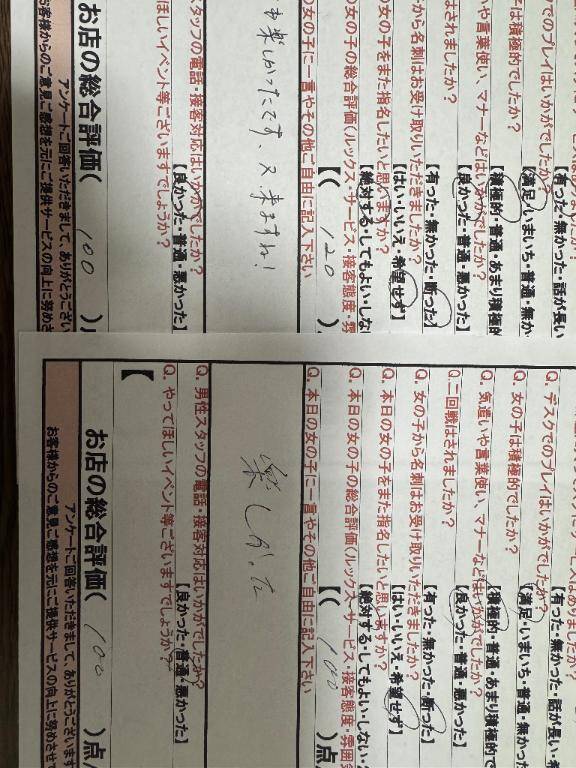 【有った・無かった・話が長い
でのプレイはいかがでしたか？
【満足・いまいち・普通・無か
は積極的でしたか？
【積極的・普通・あまり積極的
や言葉使い、マナーなどはいかがでしたか？
【良かった・普通・悪かった】
はされましたか？
【有った・無かった・断った】
から名刺はお受け取りいただきましたか？
【はい・いいえ・希望せず】
の女の子をまた指名したいと思いますか？
【絶対する・してもよい・しない
の女の子の総合評価(ルックス・サービス・接客態度・雰
【( 120 )
の女の子に一言やその他ご自由に記入下さい
楽しかったです、又来ますね！
タッフの電話・接客対応はいかがでしたか？
【良かった・普通・悪かった】
ほしいイベント等ございますでしょうか？
お店の総合評価( 100 )
アンケートに回答いただきまして、ありがとうござい
お客様からのご意見ご感想を元にご提供サービスの向上に努めさ
【有った・無かった・話が長い
Q. デスクでのプレイはいかがでしたか？
【満足・いまいち・普通・無か
Q. 女の子は積極的でしたか？
【積極的・普通・あまり積極的で
Q. 気遣いや言葉使い、マナーなどはいかがでしたか？
【良かった・普通・悪かった】
Q. 二回戦はされましたか？
【有った・無かった・断った】
Q. 女の子から名刺はお受け取りいただきましたか？
【はい・いいえ・希望せず】
Q. 本日の女の子をまた指名したいと思いますか？
【絶対する・してもよい・しない
Q. 本日の女の子の総合評価(ルックス・サービス・接客態度・雰囲気
【( 100 )点
Q. 本日の女の子に一言やその他ご自由に記入下さい
楽しかった
Q. 男性スタッフの電話・接客対応はいかがでしたか？
【良かった・普通・悪かった】
Q. やってほしいイベント等ございますでしょうか？
【
お店の総合評価( 100 )点
アンケートに回答いただきまして、ありがとうございます
お客様からのご意見ご感想を元にご提供サービスの向上に努めさせて